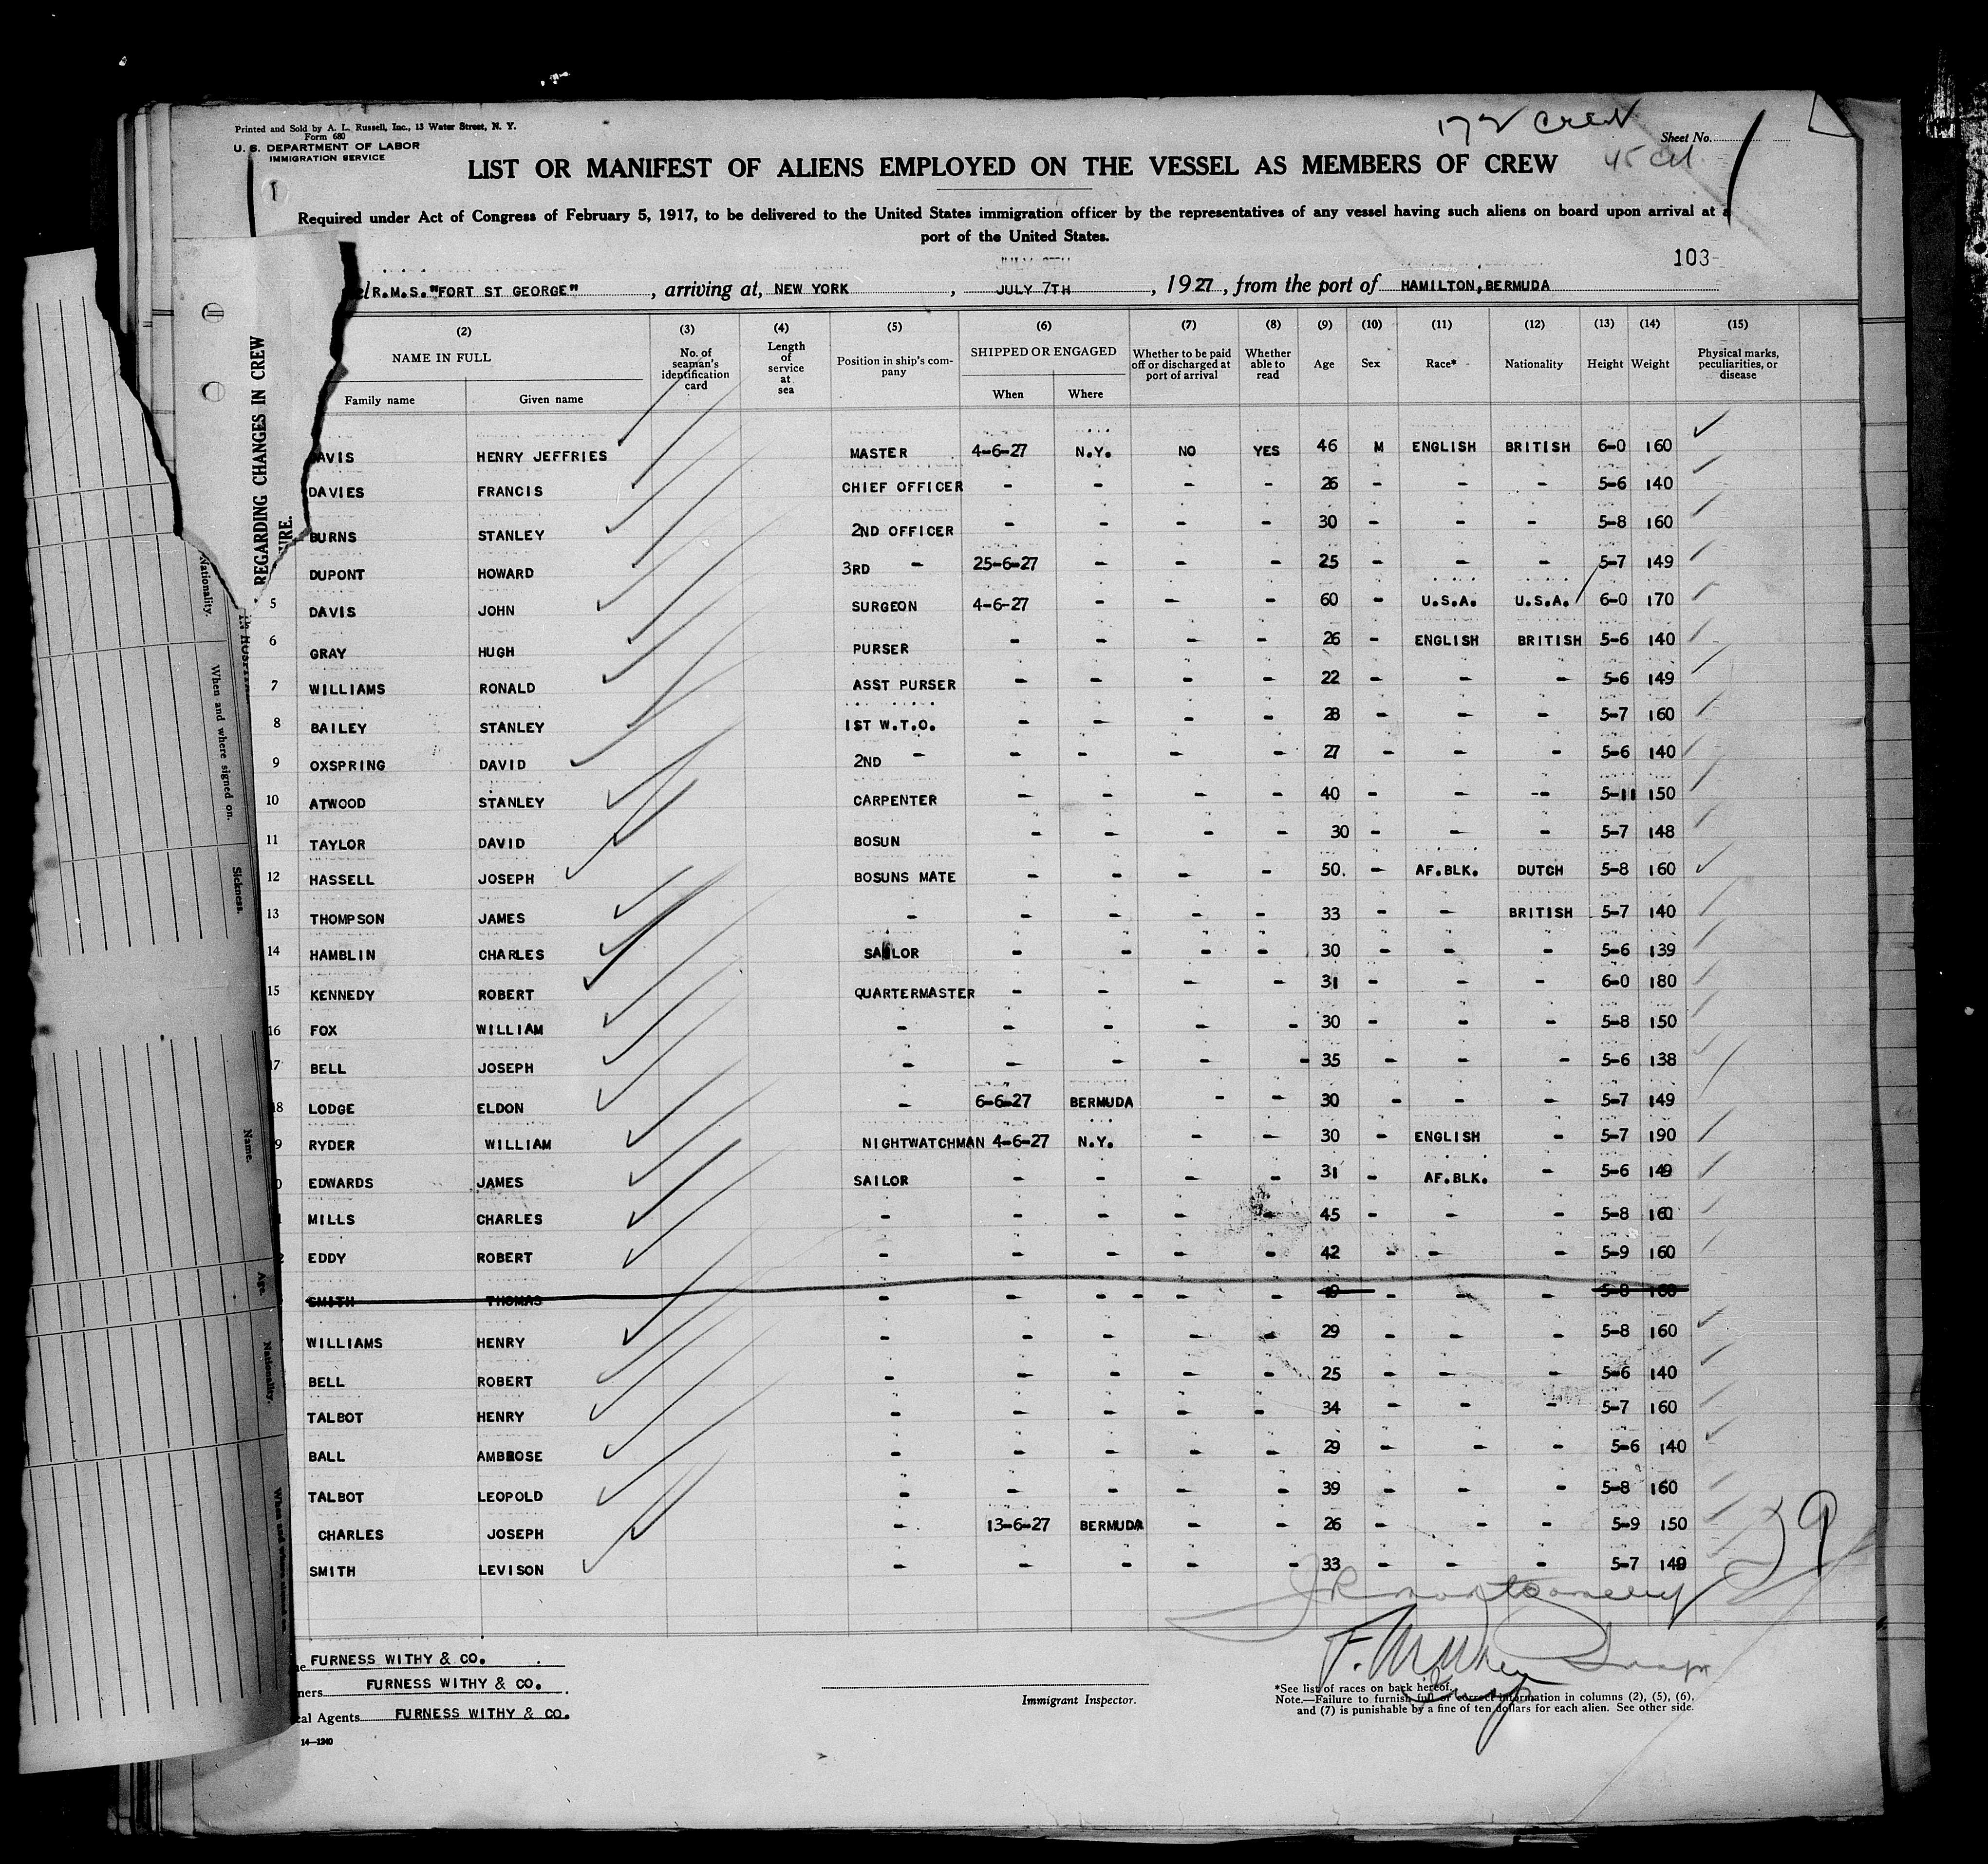 172 Crew
Printed and Sold by A. L. Russell, Inc., 13 Water Street, N. Y.
Form 680
U. S. DEPARTMENT OF LABOR
IMMIGRATION SERVICE
Sheet No.
LIST OR MANIFEST OF ALIENS EMPLOYED ON THE VESSEL AS MEMBERS OF CREW
Required under Act of Congress of February 5, 1917, to be delivered to the United States immigration officer by the representatives of any vessel having such aliens on board upon arrival at a
port of the United States.
103
R.M.S."FORT ST GEORGE", arriving at, NEW YORK, JULY 7TH, 1927, from the port of HAMILTON,BERMUDA
(2) (3) (4) (5) (6) (7) (8) (9) (10) (11) (12) (13) (14) (15)
NAME IN FULL
Family name Given name
No. of seaman's identification card
Length of service at sea
Position in ship's company
SHIPPED OR ENGAGED
When Where
Whether to be paid off or discharged at port of arrival
Whether able to read
Age Sex Race* Nationality Height Weight
Physical marks, peculiarities, or disease
AVIS HENRY JEFFRIES MASTER 4-6-27 N.Y. NO YES 46 M ENGLISH BRITISH 6-0 160
DAVIES FRANCIS CHIEF OFFICER - - - - 26 - - - 5-6 140
BURNS STANLEY 2ND OFFICER - - - - 30 - - - 5-8 160
DUPONT HOWARD 3RD - 25-6-27 - - - 25 - - - 5-7 149
5 DAVIS JOHN SURGEON 4-6-27 - - - 60 - U.S.A. U.S.A. 6-0 170
6 GRAY HUGH PURSER - - - - 26 - ENGLISH BRITISH 5-6 140
7 WILLIAMS RONALD ASST PURSER - - - - 22 - - - 5-6 149
8 BAILEY STANLEY 1ST W.T.O. - - - - 28 - - - 5-7 160
9 OXSPRING DAVID 2ND - - - - - 27 - - - 5-6 140
10 ATWOOD STANLEY CARPENTER - - - - 40 - - -- 5-11 150
11 TAYLOR DAVID BOSUN - - - - 30 - - - 5-7 148
12 HASSELL JOSEPH BOSUNS MATE - - - - 50. - AF.BLK. DUTCH 5-8 160
13 THOMPSON JAMES - - - - - 33 - - BRITISH 5-7 140
14 HAMBLIN CHARLES SAILOR - - - - 30 - - - 5-6 139
15 KENNEDY ROBERT QUARTERMASTER - - - - 31 - - - 6-0 180
16 FOX WILLIAM - - - - - 30 - - - 5-8 150
17 BELL JOSEPH - - - - - 35 - - - 5-6 138
18 LODGE ELDON - 6-6-27 BERMUDA - - 30 - - - 5-7 149
9 RYDER WILLIAM NIGHTWATCHMAN 4-6-27 N.Y. - - 30 - ENGLISH - 5-7 190
0 EDWARDS JAMES SAILOR - - - - 31 - AF.BLK. - 5-6 149
MILLS CHARLES - - - - - 45 - - - 5-8 160
2 EDDY ROBERT - - - - - 42 - - - 5-9 160
SMITH THOMAS - - - - - - - - - 5-8 160
WILLIAMS HENRY - - - - - 29 - - - 5-8 160
BELL ROBERT - - - - - 25 - - - 5-6 140
TALBOT HENRY - - - - - 34 - - - 5-7 160
BALL AMBROSE - - - - - 29 - - - 5-6 140
TALBOT LEOPOLD - - - - - 39 - - - 5-8 160
CHARLES JOSEPH - 13-6-27 BERMUDA - - 26 - - - 5-9 150
SMITH LEVISON - - - - - 33 - - - 5-7 149
29
FURNESS WITHY & CO.
ners FURNESS WITHY & CO.
cal Agents FURNESS WITHY & CO.
14—1240
Immigrant Inspector.
*See list of races on back hereof.
Note.—Failure to furnish full or correct information in columns (2), (5), (6),
and (7) is punishable by a fine of ten dollars for each alien. See other side.
REGARDING CHANGES IN CREW
Nationality.
When and where signed on.
Sickness.
Name.
Age.
Nationality.
When and where signed on.